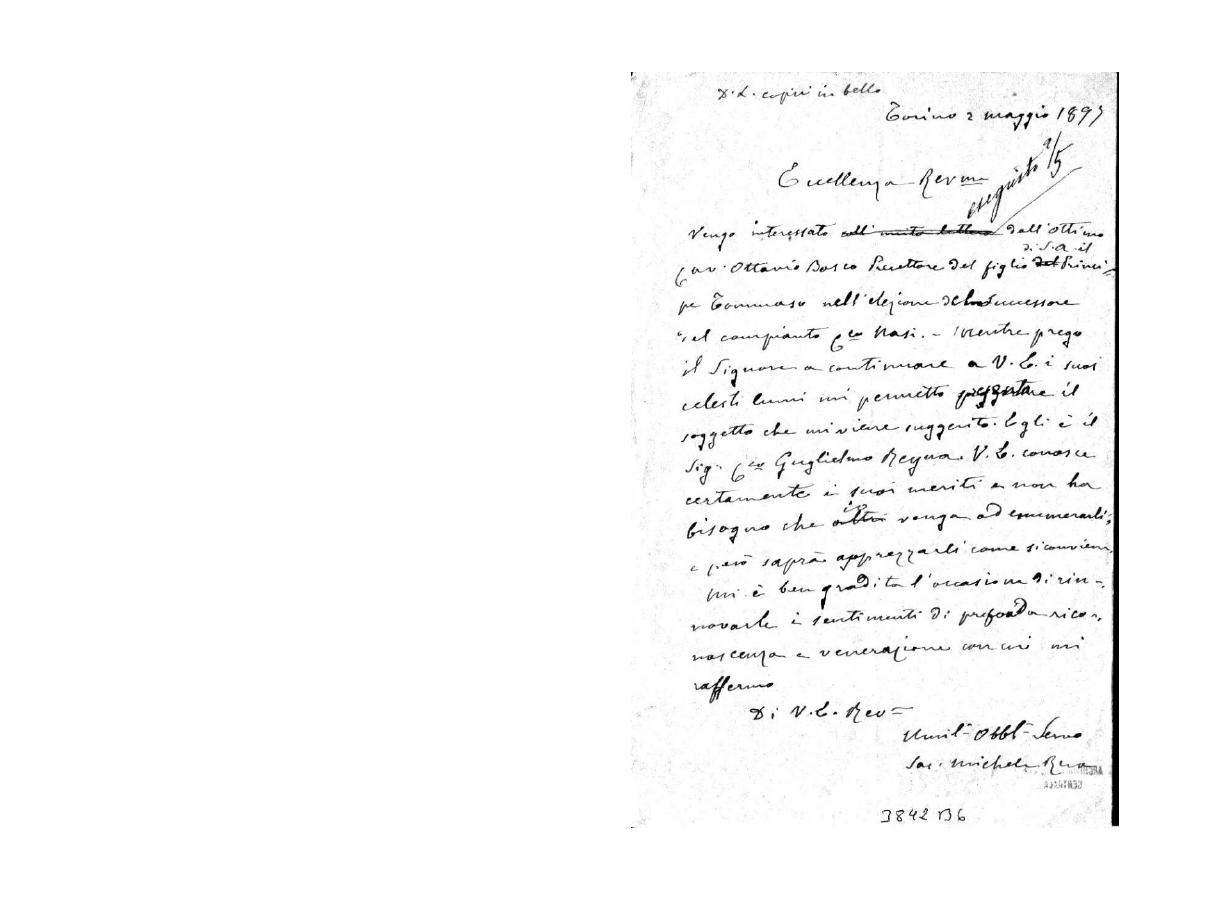 D. L. copii in bello
Torino 2 maggio 1897
eseguito 2/5
Eccellenza Rev.ma
Vengo interessato dall'ottimo
di S. A. il
Cav. Ottavio Bosco Precettore del figlio del Princi-
pe Tommaso nell'elezione del Successore
del compianto Co Nasi. - Mentre prego
il Signore a continuare a V. E. i suoi
celesti lumi mi permetto il
soggetto che mi viene suggerito. Egli è il
Sig. Co Guglielmo Reyna. V. E. conosce
certamente i suoi meriti e non ha
bisogno che io venga ad enumerarli;
e però saprà apprezzarli come si conviene.
Mi è ben gradita l'occasione di rin-
novarle i sentimenti di profonda rico-
noscenza e venerazione con cui mi
raffermo
Di V. E. Rev=
Umil- Obbl- Servo
Sac. Michele Rua
CENTRALE
3842 B6